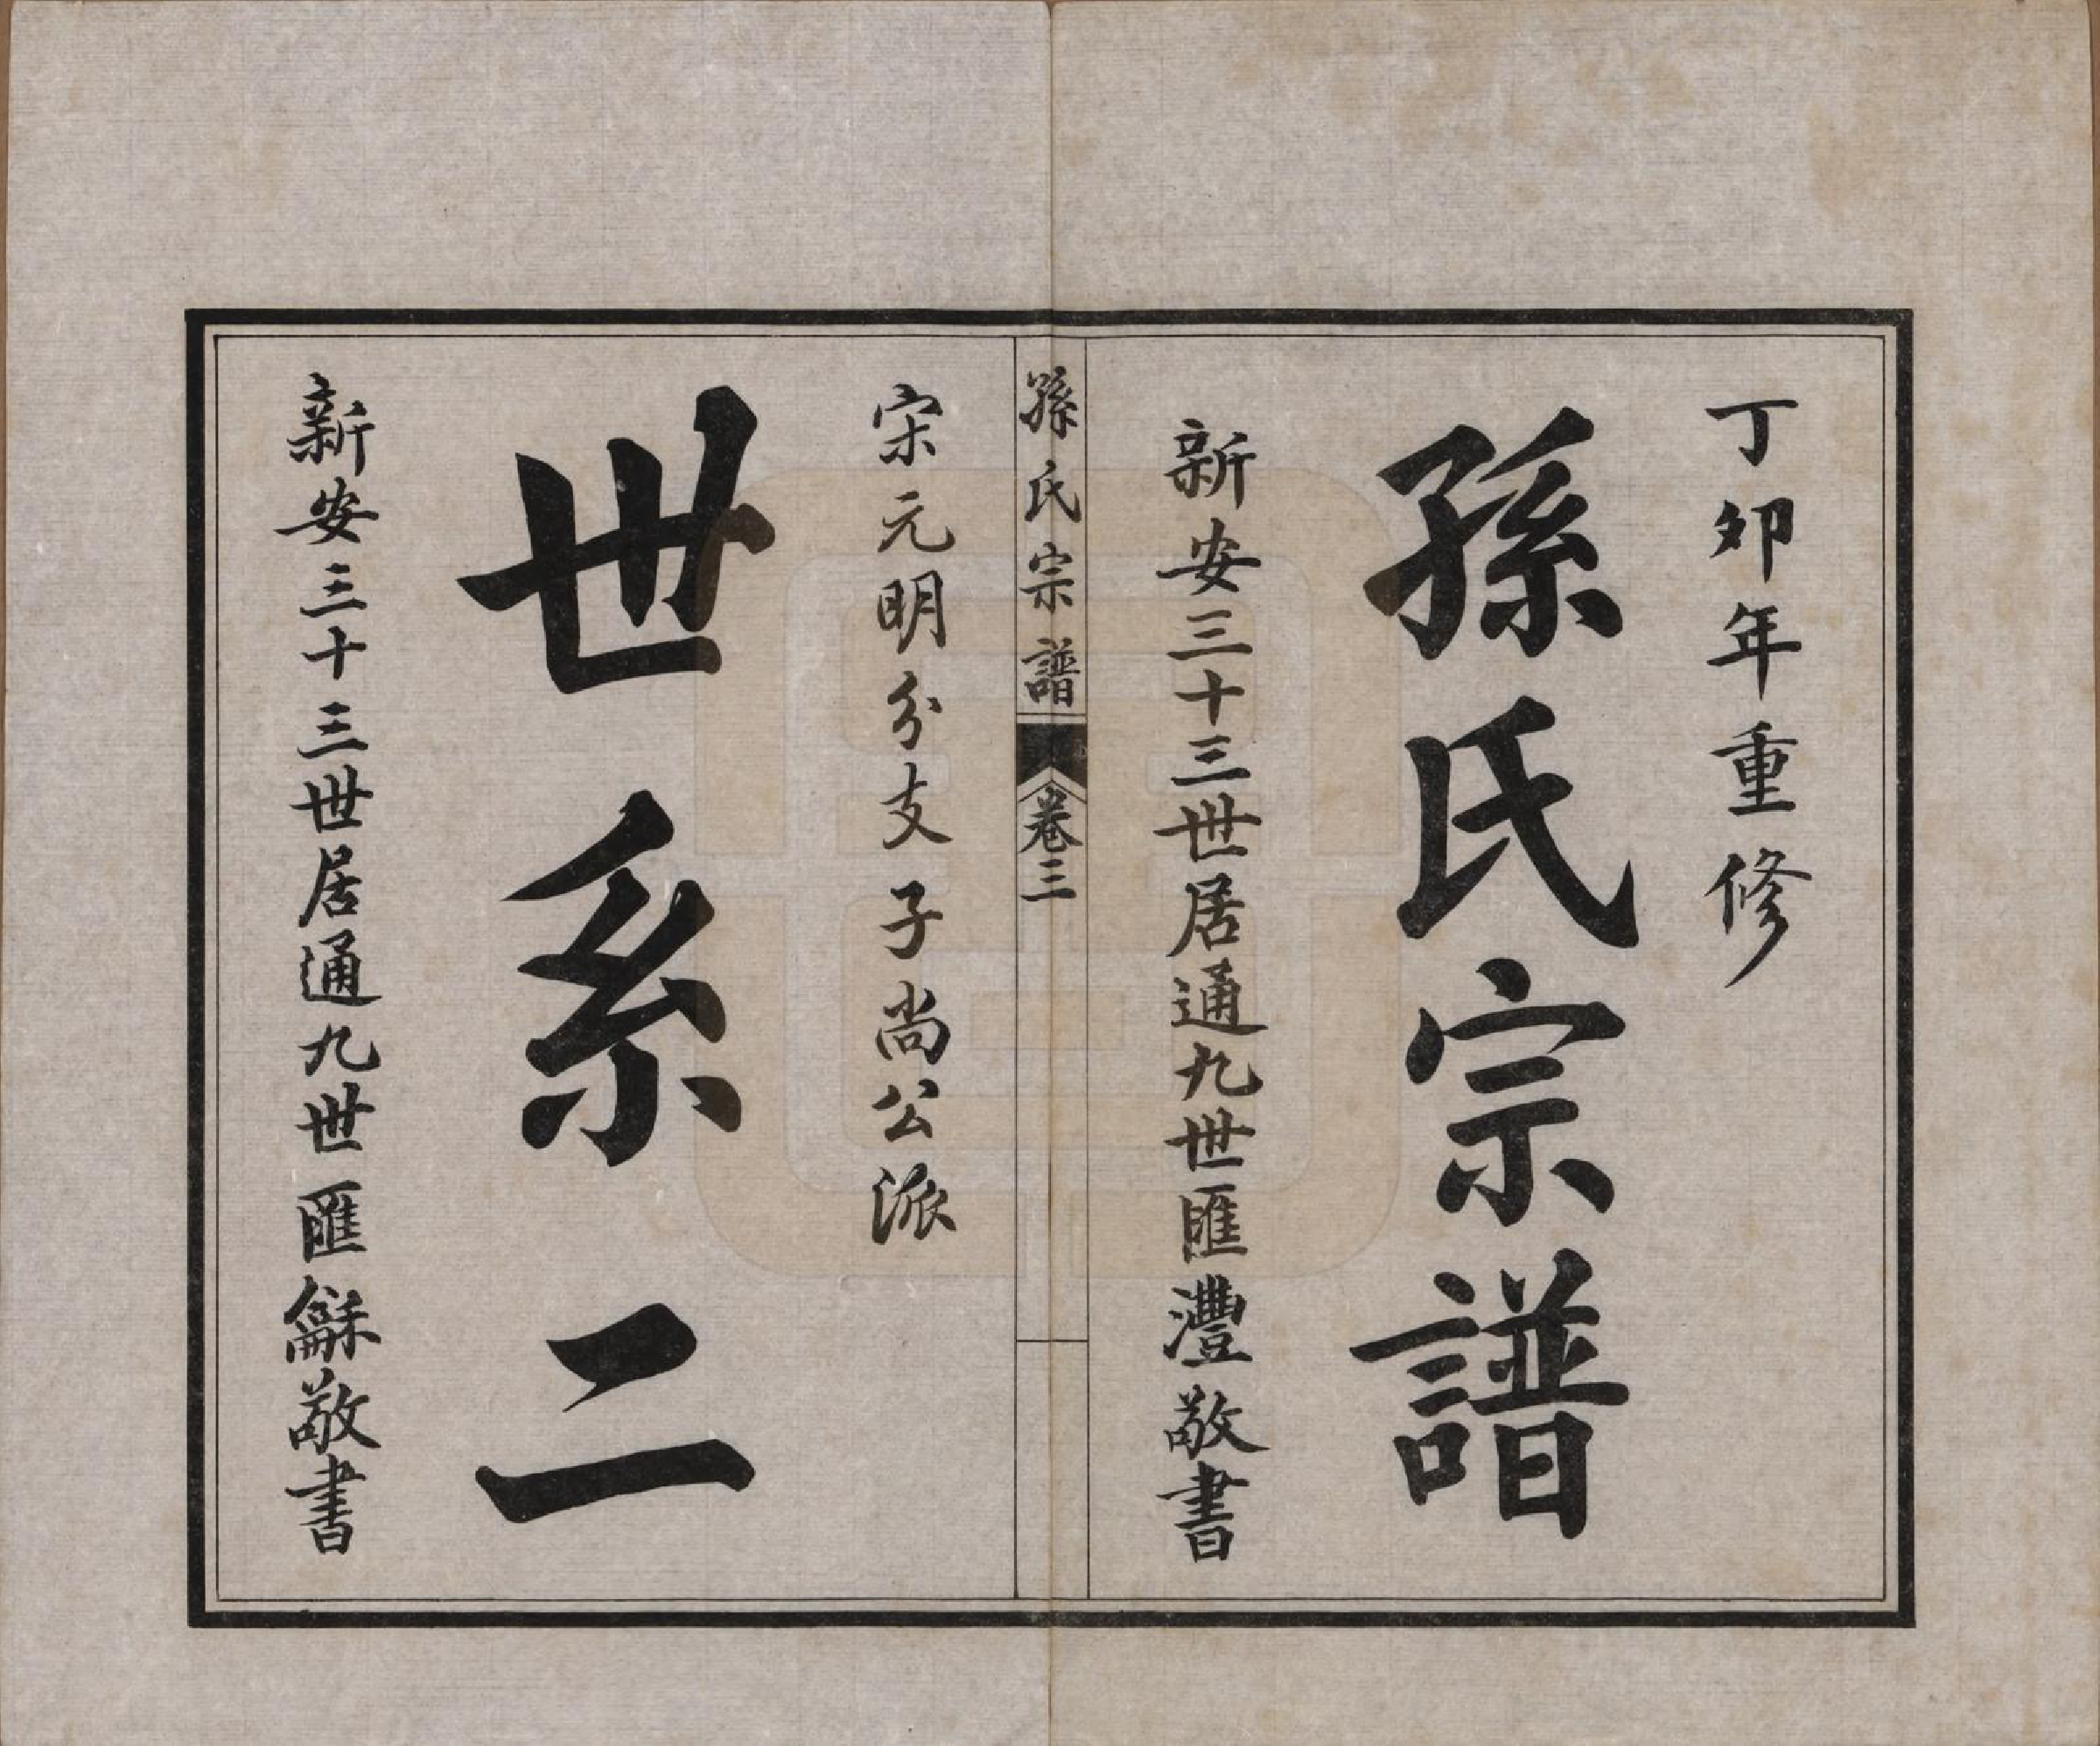 丁卯年重修
孫氏宗譜
新安三十三世居通九世匯灃敬書
孫氏宗譜
卷三
宋元明分支子尚公派
世系二
新安三十三世居通九世匯龢敬書